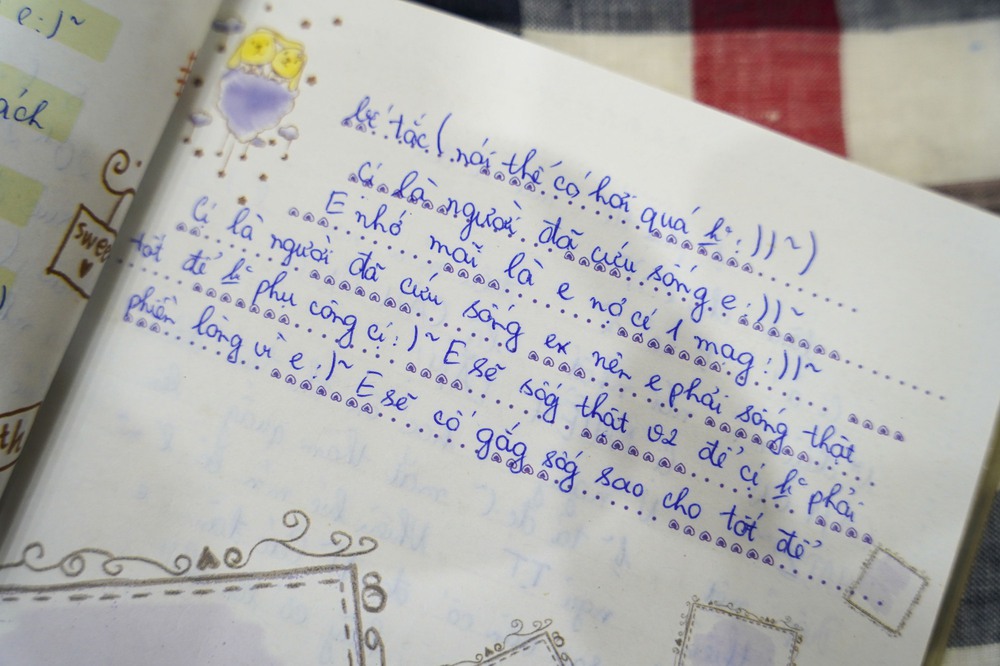 e :)~
ách
swee
th
bế tắc (nói thế có hơi quá h° :))~)
Cí là người đã cứu sống e :))~
E nhớ mãi là e nợ cí 1 mạg :))~
Cí là người đã cứu sống ex nên e phải sống thật
tốt để h° phụ công cí :)~ E sẽ sốg thật v2 để cí h° phải
phiền lòng vì e :)~ E sẽ cố gắg sốg sao cho tốt để